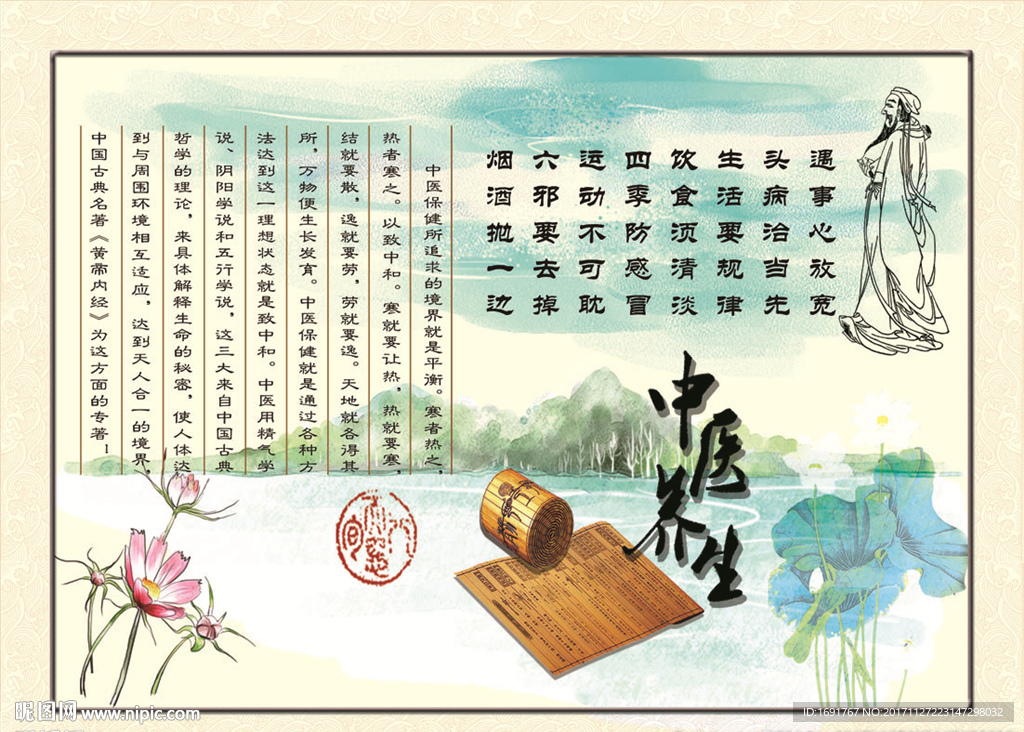 遇事心放宽
头病治当先
生活要规律
饮食须清淡
四季防感冒
运动不可耽
六邪要去掉
烟酒抛一边
中医养生
中医保健所追求的境界就是平衡。寒者热之，
热者寒之。以致中和。寒就要让热，热就要寒，
结就要散，逸就要劳，劳就要逸。天地就各得其
所，万物便生长发育。中医保健就是通过各种方
法达到这一理想状态就是致中和。中医用精气学
说、阴阳学说和五行学说，这三大来自中国古典
哲学的理论，来具体解释生命的秘密，使人体达
到与周围环境相互适应，达到天人合一的境界，
中国古典名著《黄帝内经》为这方面的专著！
昵图网 www.nipic.com
ID:1691767 NO:20171127223147298032